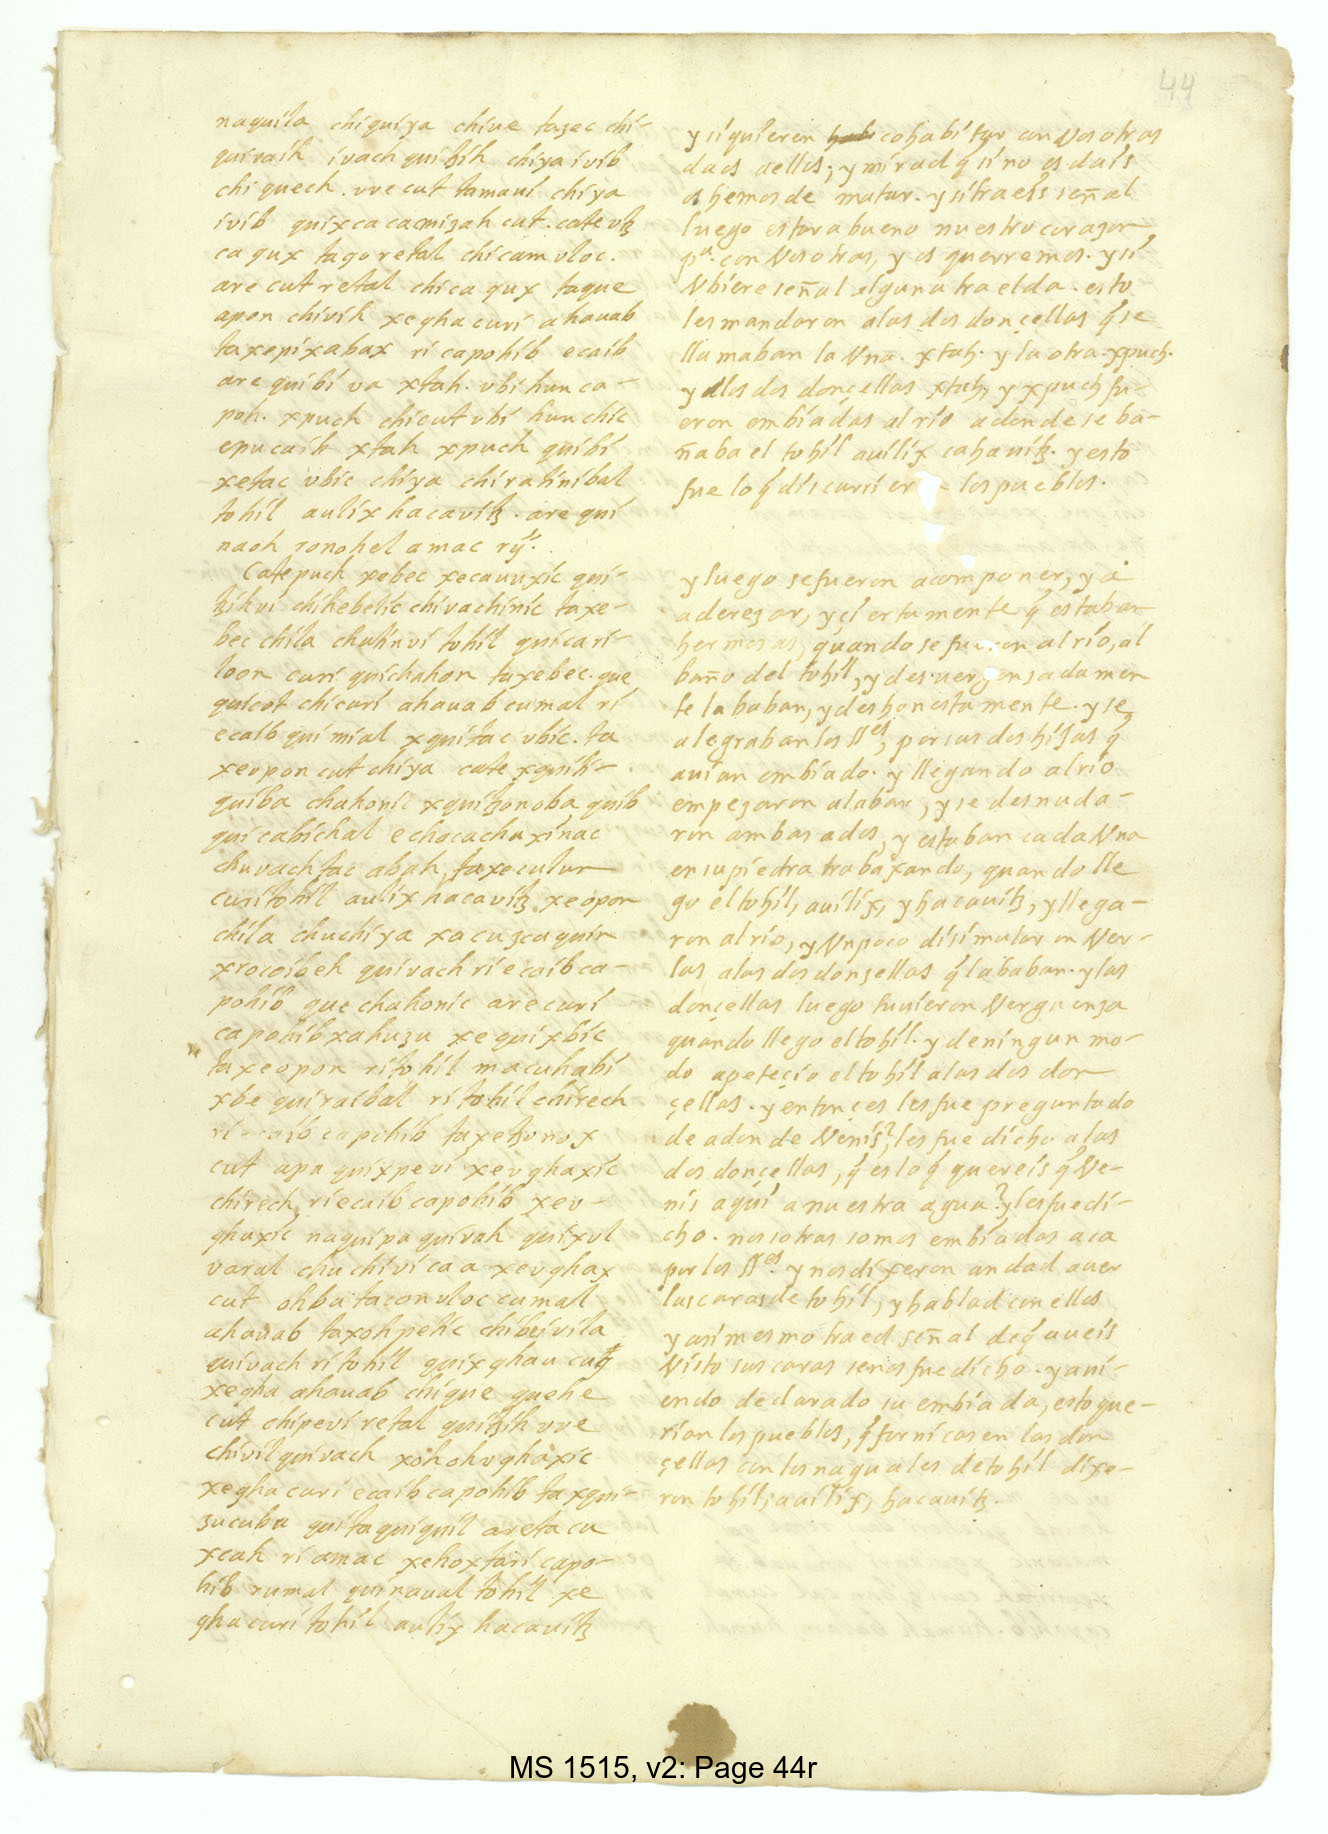 44
naquila chiquiya chiue taʒec chi-
quiraih ivach quibih chiya ivib
chi quech. vve cut tamaui chiya
ivib quixcacacmiʒah cut. cate vtʒ
ca qux taqo retal chicam vloc.
are cut retal chica qux taque
apon chivih xegha curi ahauab
taxepixabax ri capohib ecaib
are quibi va xtah. vbi hun ca-
poh. xpuch chicut vbi hun chic
epucaih xtah xpuch quibi
xetac vbic chiya chi ratinibal
tohil auilix hacavitʒ. are qui
naoh ronohel amac rij.
Catepuch xebec xecauuxic qui-
tʒih vi chihebelic chivachinic taxe-
bec chila chatin vi tohil quicari-
loon curi quichahon taxebec. que
quicot chicuri ahauab cumal ri
ecaib quimial xquitac vbic. ta
xeopon cut chiya cate xquih-
quiba chahonic xquitʒonoba quib
quicabichal echacachaxinac
chuvach tac abah, taxeculun
curi tohil auilix hacavitʒ xeopon
chila chuchiya xacuʒcaquin
xrocoibeh quivach ri ecaib ca-
pohib que chahonic arecuri
capohib xahuʒu xequixbic
taxeopon ri tohil macuhabi
xbe quiraibal ri tohil chirech
ri ecaib capohib taxetʒonox
cut apa quixpevi xevghaxic
chirech ri ecaib capohib xev-
ghaxic naquipa quirah quixul
varal chuchi vi ca a xevghax
cut ohba tacon vloc cumal
ahauab taxohpetic chibeivila
quivach ri tohil quixghau cuq
xegha ahauab chique quehe
cut chipevi retal quitʒih vve
chivil quivach xohohvghaxic
xegha curi ecaib capohib taxqui-
ʒucuba quitaquiquil areta cu
xcah ri amac xehoxtari capo-
hib rumal quinaual tohil xe
gha curi tohil auilix hacauitʒ
y si quieren cohabitar con Vosotros
daos aellos; y mirad q̃ si no os dais
os hemos de matar. y si traeis señal
luego estara bueno nuestro coraʒon
pa. con Vosotros, y os querremos. y si
Vbiere señal alguna traelda. esto
les mandaron alas dos donçellas q̃ se
llamaban la Vna. xtah. y la otra. xpuch.
y alas dos donçellas xtah, y xpuch fu-
eron embiadas al rio adonde se ba-
ñaba el tohil auilix cahauitʒ. y esto
fue lo q̃ discurrier los pueblos.
y luego se fueron acomponer, y a
adereʒar, y ciertamente q̃ estaban
hermosas, quando se fueron al rio, al
baño del tohil, y desuergonsadamen
te lababan, y deshonestamente. y se
alegraban los SSes, por sus dos hijas q̃
auian embiado. y llegando al rio
empeʒaron alabar, y se desnuda-
ron ambas ados, y estaban cada Vna
en su piedra trabaxando, quando lle
go el tohil, auilix, y hacauitʒ, y llega-
ron al rio, y Vn poco disimularon Ver-
las alas dos donsellas q̃ lababan. y las
donçellas luego tuuieron Verguensa
quando llego el tohil. y de ningun mo-
do apeteçio el tohil alas dos don
çellas. y entonçes les fue preguntado
de adonde Venis? les fue dicho alas
dos donçellas, q̃ es lo q̃ quereis q̃ Ve-
nis aqui a nuestra agua? y les fue di-
cho. nosotras somos embiadas aca
por los SSes. y nos dixeron andad auer
las caras de tohil, y hablad con ellos
y asimesmo traed señal de q̃ aueis
Visto sus caras senos fue dicho. y aui-
endo declarado su embiada, esto que-
rian los pueblos, q̃ fornicasen las don
çellas con los naguales de tohil dixe-
ron tohil, auilix, hacauitʒ.
MS 1515, v2: Page 44r